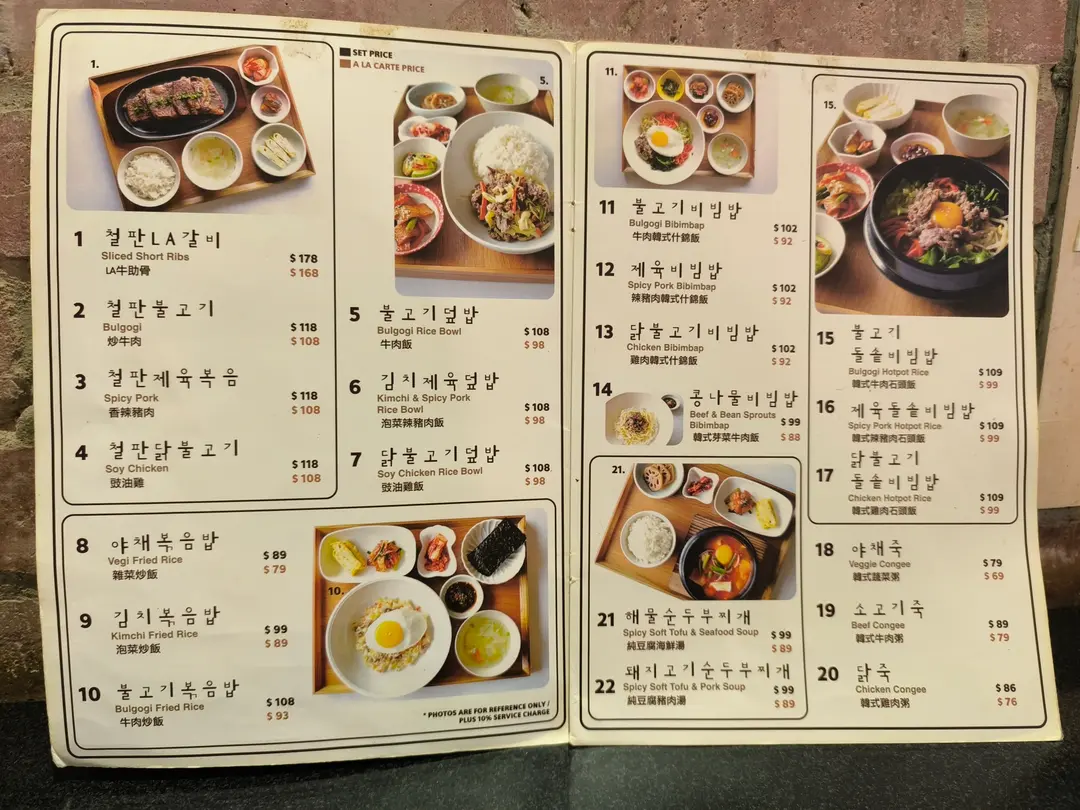 SET PRICE
A LA CARTE PRICE
1.
1 철판LA갈비
Sliced Short Ribs $178
LA牛助骨 $168
2 철판불고기
Bulgogi $118
炒牛肉 $108
3 철판제육볶음
Spicy Pork $118
香辣豬肉 $108
4 철판닭불고기
Soy Chicken $118
豉油雞 $108
5.
5 불고기덮밥
Bulgogi Rice Bowl $108
牛肉飯 $98
6 김치제육덮밥
Kimchi & Spicy Pork
Rice Bowl $108
泡菜辣豬肉飯 $98
7 닭불고기덮밥
Soy Chicken Rice Bowl $108
豉油雞飯 $98
8 야채볶음밥
Vegi Fried Rice $89
雜菜炒飯 $79
9 김치볶음밥
Kimchi Fried Rice $99
泡菜炒飯 $89
10 불고기볶음밥
Bulgogi Fried Rice $108
牛肉炒飯 $93
10.
* PHOTOS ARE FOR REFERENCE ONLY /
PLUS 10% SERVICE CHARGE
11.
11 불고기비빔밥
Bulgogi Bibimbap $102
牛肉韓式什錦飯 $92
12 제육비빔밥
Spicy Pork Bibimbap $102
辣豬肉韓式什錦飯 $92
13 닭불고기비빔밥
Chicken Bibimbap $102
雞肉韓式什錦飯 $92
14 콩나물비빔밥
Beef & Bean Sprouts
Bibimbap $99
韓式芽菜牛肉飯 $88
21.
21 해물순두부찌개
Spicy Soft Tofu & Seafood Soup $99
純豆腐海鮮湯 $89
22 돼지고기순두부찌개
Spicy Soft Tofu & Pork Soup $99
純豆腐豬肉湯 $89
15.
15 불고기
돌솥비빔밥
Bulgogi Hotpot Rice $109
韓式牛肉石頭飯 $99
16 제육돌솥비빔밥
Spicy Pork Hotpot Rice $109
韓式辣豬肉石頭飯 $99
17 닭불고기
돌솥비빔밥
Chicken Hotpot Rice $109
韓式雞肉石頭飯 $99
18 야채죽
Veggie Congee $79
韓式蔬菜粥 $69
19 소고기죽
Beef Congee $89
韓式牛肉粥 $79
20 닭죽
Chicken Congee $86
韓式雞肉粥 $76